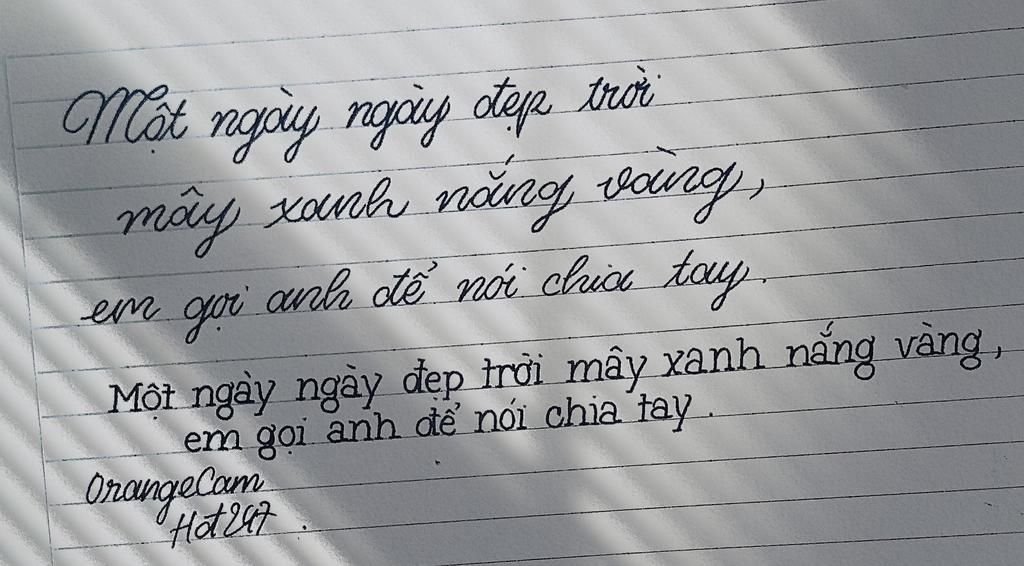 Một ngày ngày đẹp trời
mây xanh nắng vàng,
em gọi anh để nói chia tay.
Một ngày ngày đẹp trời mây xanh nắng vàng,
em gọi anh để nói chia tay.
OrangeCam
Hot247.